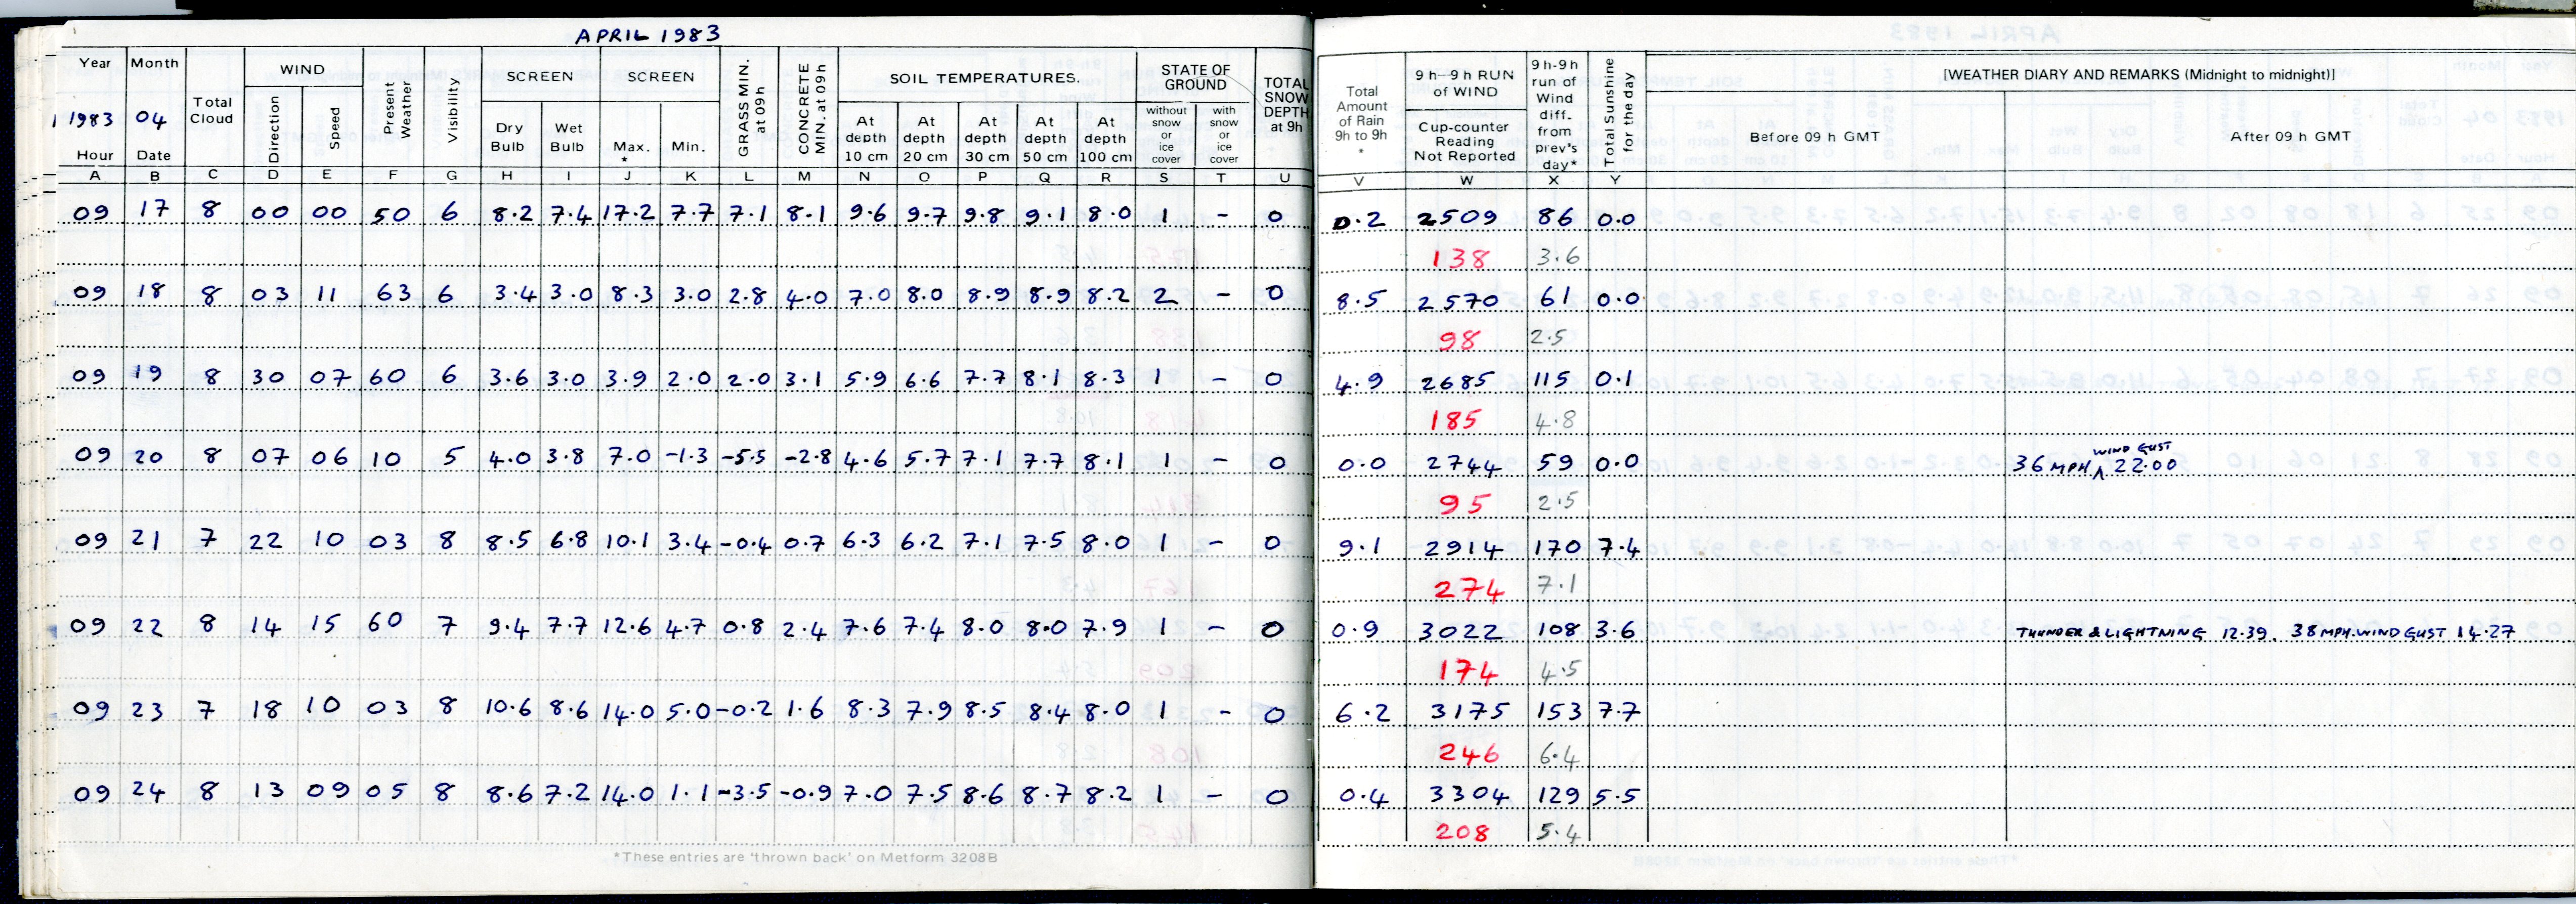 APRIL 1983
Year Month Total Cloud WIND Direction Speed Present Weather Visibility SCREEN Dry Bulb Wet Bulb SCREEN Max. * Min. GRASS MIN. at 09h CONCRETE MIN. at 09h SOIL TEMPERATURES. At depth 10 cm At depth 20 cm At depth 30 cm At depth 50 cm At depth 100 cm STATE OF GROUND without snow or ice cover with snow or ice cover TOTAL SNOW DEPTH at 9h Total Amount of Rain 9h to 9h * 9 h—9 h RUN of WIND Cup-counter Reading Not Reported 9h-9h run of Wind diff. from prev's day* Total Sunshine for the day [WEATHER DIARY AND REMARKS (Midnight to midnight)] Before 09 h GMT After 09 h GMT
1983 04
Hour Date
A B C D E F G H I J K L M N O P Q R S T U V W X Y
09 17 8 00 00 50 6 8.2 7.4 17.2 7.7 7.1 8.1 9.6 9.7 9.8 9.1 8.0 1 - 0 0.2 2509 86 0.0
138 3.6
09 18 8 03 11 63 6 3.4 3.0 8.3 3.0 2.8 4.0 7.0 8.0 8.9 8.9 8.2 2 - 0 8.5 2570 61 0.0
98 2.5
09 19 8 30 07 60 6 3.6 3.0 3.9 2.0 2.0 3.1 5.9 6.6 7.7 8.1 8.3 1 - 0 4.9 2685 115 0.1
185 4.8
09 20 8 07 06 10 5 4.0 3.8 7.0 -1.3 -5.5 -2.8 4.6 5.7 7.1 7.7 8.1 1 - 0 0.0 2744 59 0.0 36 MPH WIND GUST 22.00
95 2.5
09 21 7 22 10 03 8 8.5 6.8 10.1 3.4 -0.4 0.7 6.3 6.2 7.1 7.5 8.0 1 - 0 9.1 2914 170 7.4
274 7.1
09 22 8 14 15 60 7 9.4 7.7 12.6 4.7 0.8 2.4 7.6 7.4 8.0 8.0 7.9 1 - 0 0.9 3022 108 3.6 THUNDER & LIGHTNING 12.39. 38 MPH. WIND GUST 14.27
174 4.5
09 23 7 18 10 03 8 10.6 8.6 14.0 5.0 -0.2 1.6 8.3 7.9 8.5 8.4 8.0 1 - 0 6.2 3175 153 7.7
246 6.4
09 24 8 13 09 05 8 8.6 7.2 14.0 1.1 -3.5 -0.9 7.0 7.5 8.6 8.7 8.2 1 - 0 0.4 3304 129 5.5
208 5.4
*These entries are 'thrown back' on Metform 3208B